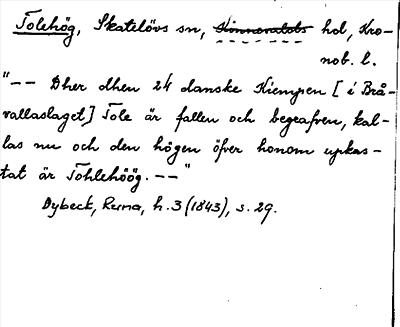 Tolehög, Skatelövs sn, Kinnevalds hd, Kro-
nob. l.
"-- Dher dhen 24 danske Kiempen [i Brå-
vallaslaget] Tole är fallen och begrafven, kal-
las nu och den högen öfver honom upkas-
tat är Tohlehöög. --"
Dybeck, Runa, h. 3 (1843), s. 29.